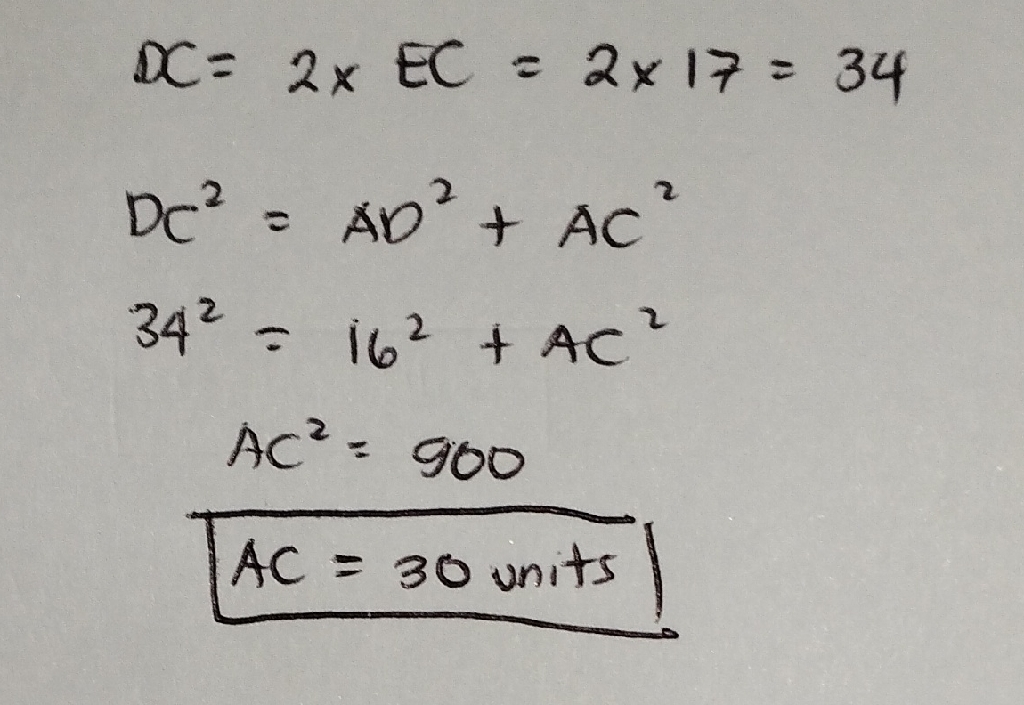 DC = 2 x EC = 2 x 17 = 34
DC² = AD² + AC²
34² = 16² + AC²
AC² = 900
AC = 30 units